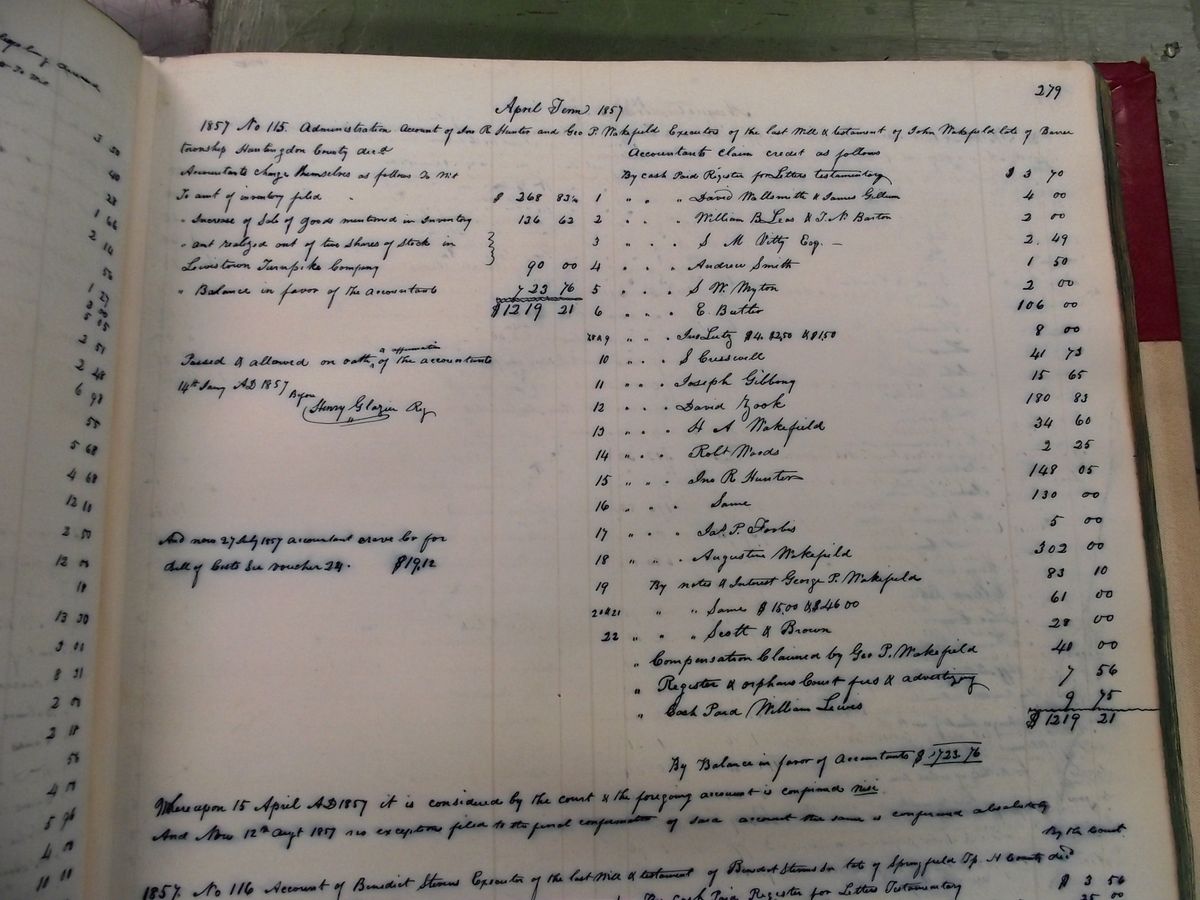 279
April Term 1857
1857 No 115. Administration Account of Jno R Hunter and Geo P. Wakefield Executors of the last Will & testament of John Wakefield late of Barree
township Huntingdon County decd
Accountants charge themselves as follows To Wit
To amt of inventory filed $ 268 83
" Increase of Sale of goods mentioned in Inventory 136 62
" amt realized out of two shares of Stock in
Lewistown Turnpike Company 90 00
" Balance in favor of the accountants 723 76
$1219 21
Passed & allowed on oath & affirmation of the accountants
14th Jany AD 1857
Henry Glazier Reg
And now 27 July 1857 accountant crave Cr for
Bill of Costs See voucher 24. $19,12
Accountants Claim credit as follows
By cash Paid Register for Letters testamentary $ 3 70
1 " " " David Walksmith & James Gillum 4 00
2 " " " William B Leas & T. N. Barton 2 00
3 " " " S M Vitty Esq. — 2. 49
4 " " " Andrew Smith 1 50
5 " " " S W Myton 2 00
6 " " " E. Butler 106 00
7 8 & 9 " " " Jno Lutz $4. $2,50 & $1,50 8 00
10 " " " S Cresswell 41 73
11 " " " Joseph Gibbony 15 65
12 " " " David Zook 180 83
13 " " " H A Wakefield 34 60
14 " " " Robt Woods 2 25
15 " " " Jno R Hunter 148 05
16 " " " Same 130 00
17 " " " Jas. P. Forbs 5 00
18 " " " Augustin Wakefield 302 00
19 By notes & Interest George P. Wakefield 83 10
20 & 21 " " Same $ 15.00 & $46 00 61 00
22 " " " Scott & Brown 28 00
" Compensation Claimed by Geo P. Wakefield 40 00
" Register & orphans Court fees & advertizing 7 56
" Cash Paid William Lewis 9 75
$ 1219 21
By Balance in favor of Accountants $ 723.76
Whereupon 15 April AD 1857 it is considered by the court & the foregoing account is confirmed nisi
And Now 12th Augt 1857 no exceptions filed to the final confirmation of said account the same is confirmed absolutely
By the Court
1857. No 116 Account of Benedict Stevens Executor of the last Will & testament of Benedict Stevens Sr late of Springfield Tp. H County decd
By Cash Paid Register for Letters Testamentary $ 3 56
25 00